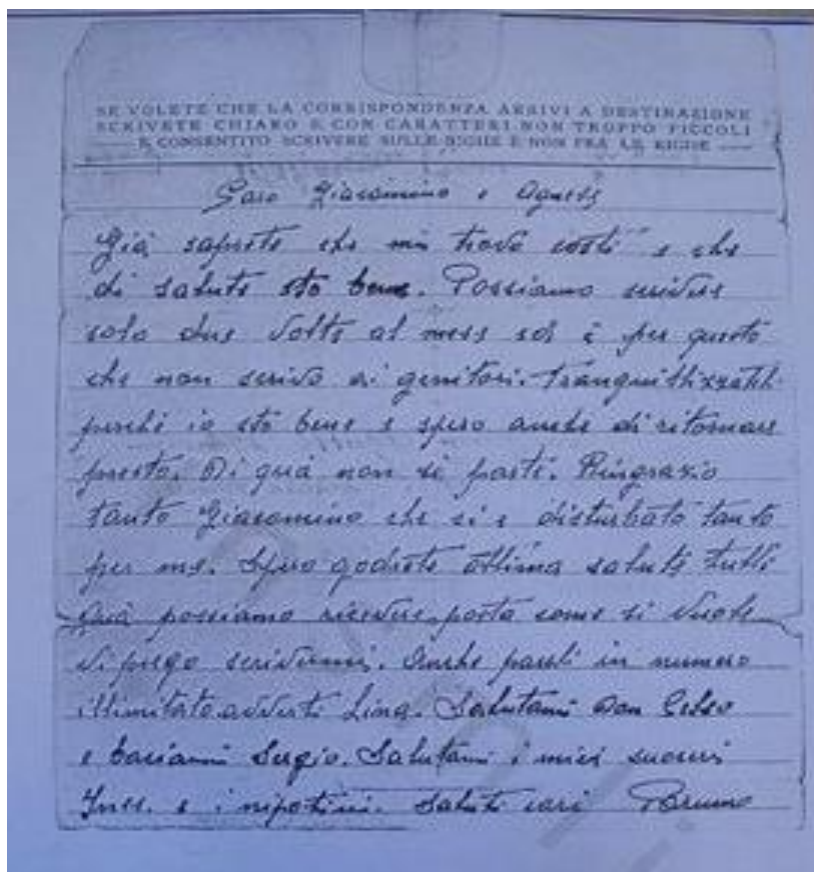 SE VOLETE CHE LA CORRISPONDENZA ARRIVI A DESTINAZIONE
SCRIVETE CHIARO E CON CARATTERI NON TROPPO PICCOLI
È CONSENTITO SCRIVERE SULLE RIGHE E NON FRA LE RIGHE
Caro Giacomino e Agnese
Già saprete che mi trovo costì e che
di salute sto bene. Possiamo scrivere
solo due volte al mese ed è per questo
che non scrivo ai genitori. Tranquillizzateli
perché io sto bene e spero anche di ritornare
presto. Di quà non si parte. Ringrazio
tanto Giacomino che si è disturbato tanto
per me. Spero godrete ottima salute tutti
Quà possiamo ricevere posta come si vuole
Vi prego scrivermi. Anche pacchi in numero
illimitato avverti Lina. Salutami Don Celso
e baciami Sergio. Salutami i miei suoceri
e i nipotini. Saluti cari Bruno